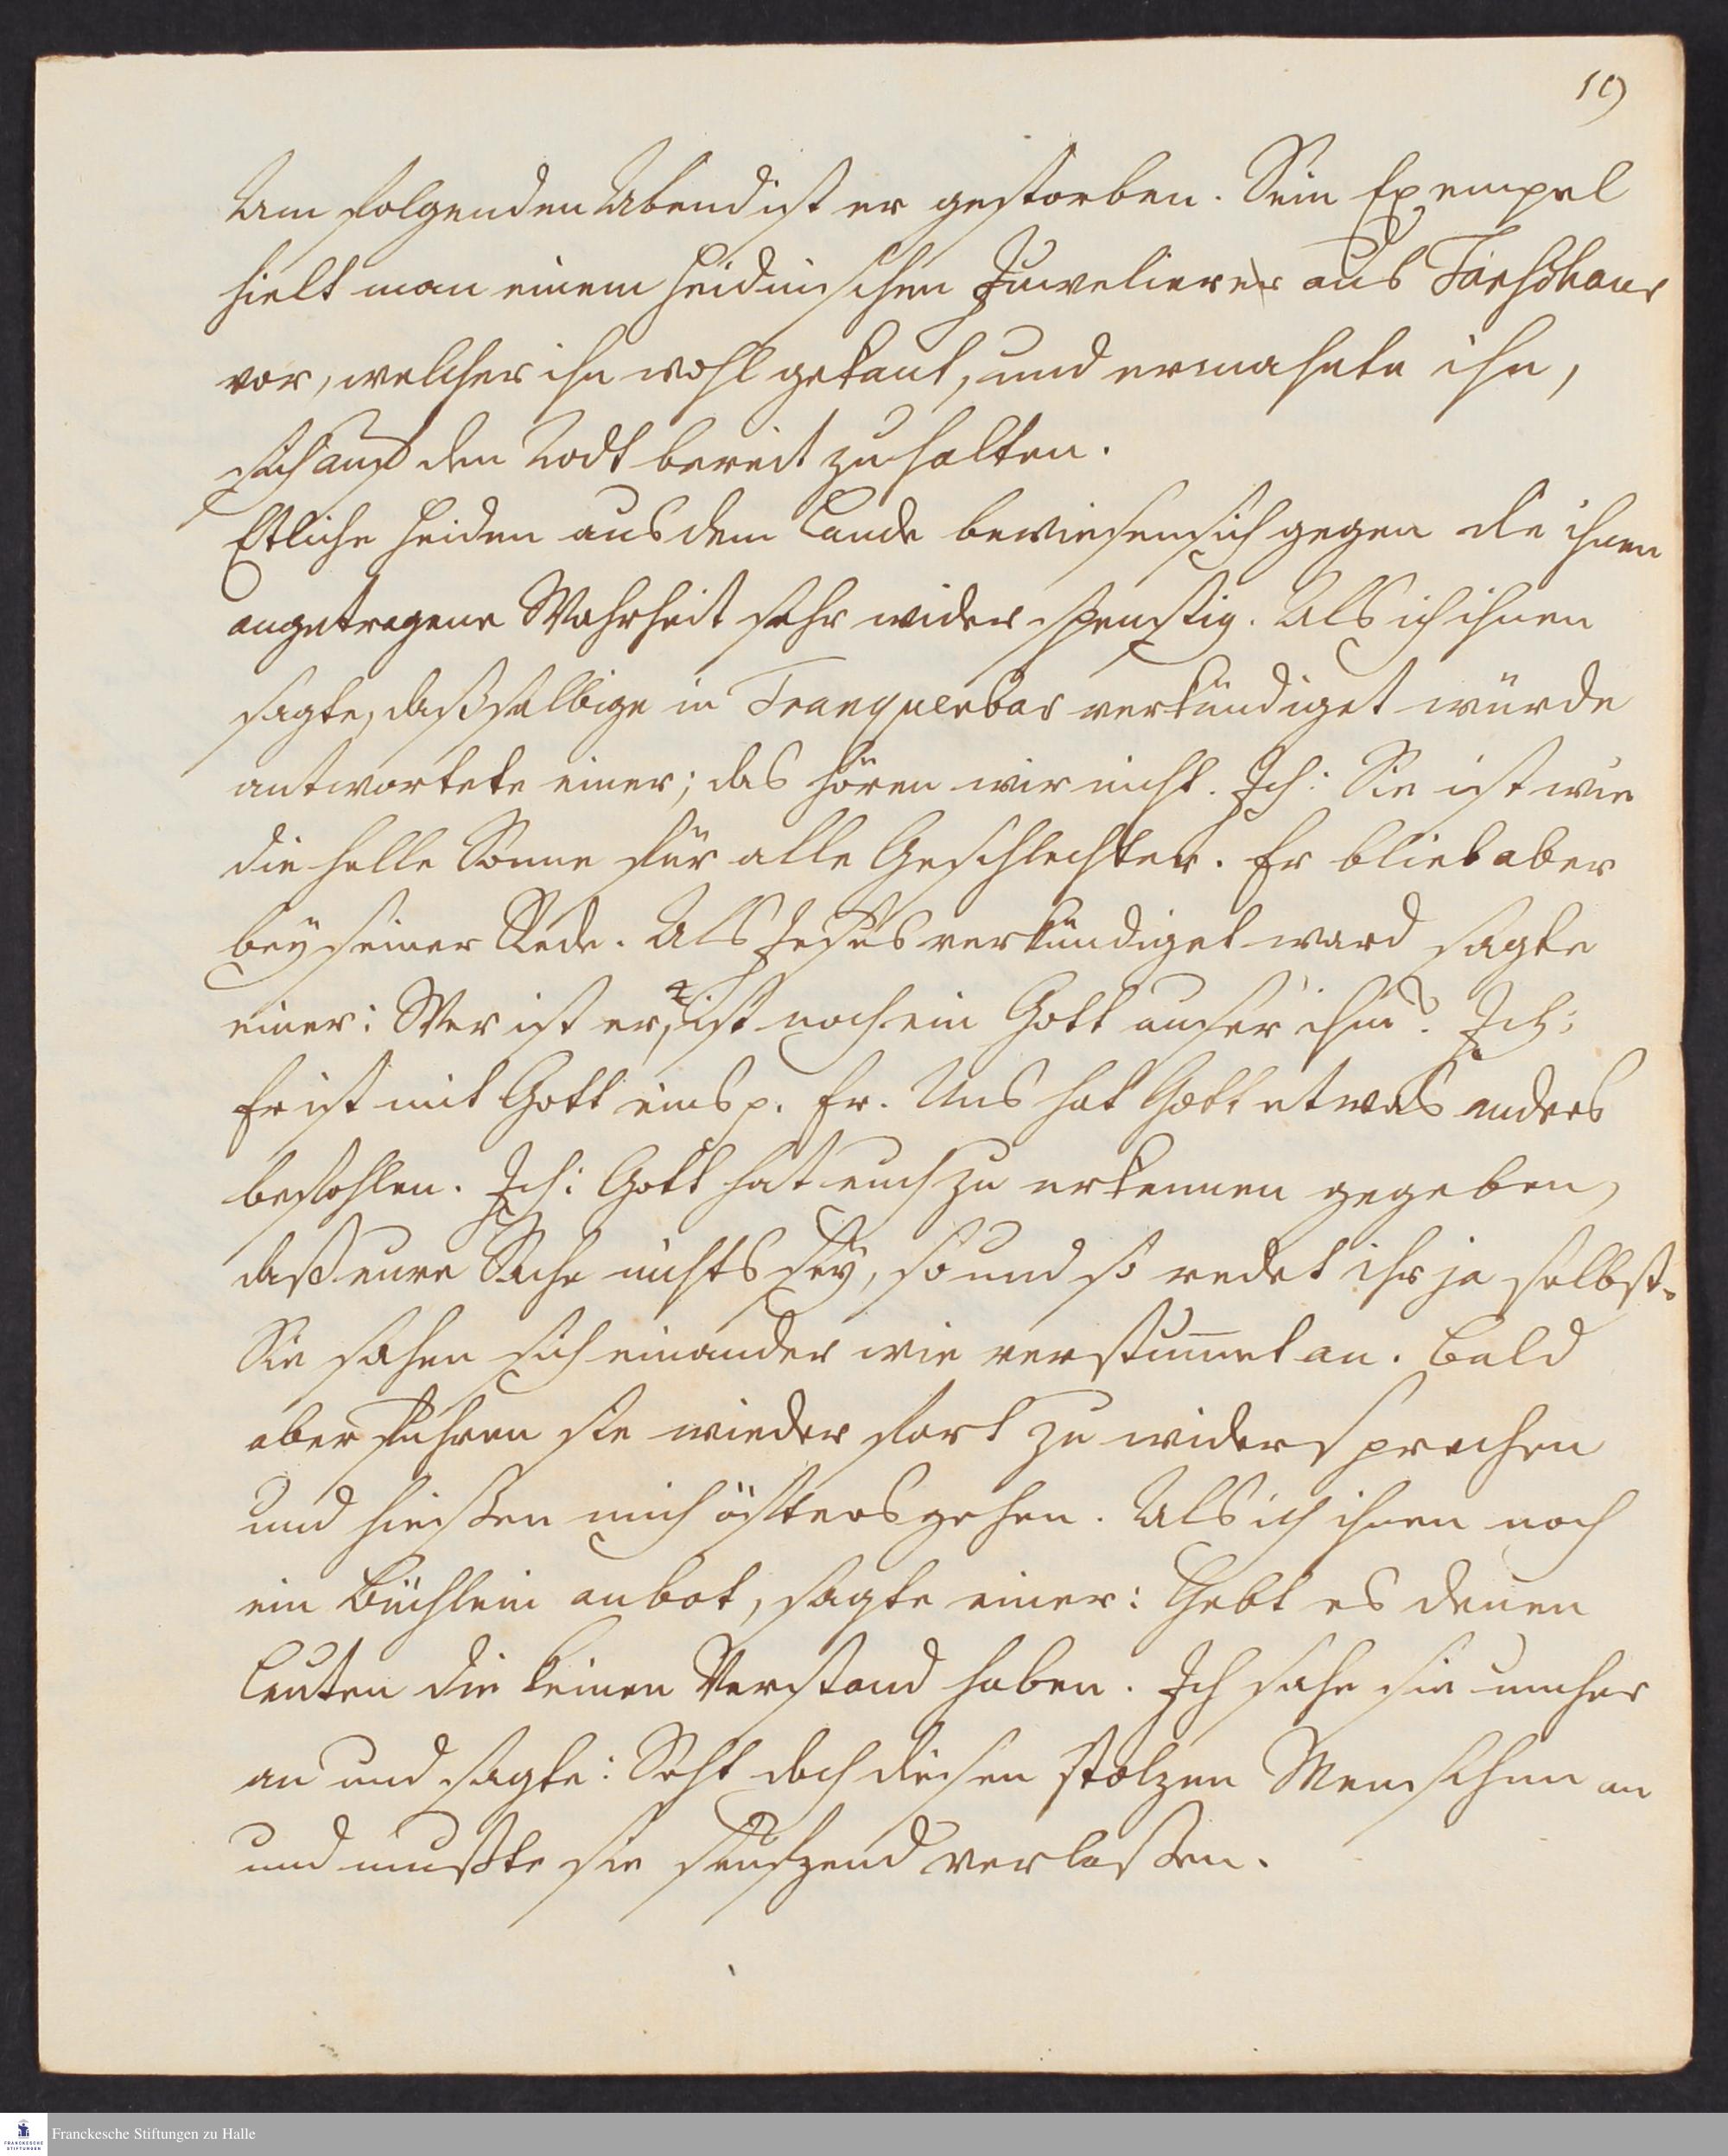 19
Am folgenden Abend ist er gestorben. Sein Exempel
hielt man einem heidnischen Juwelierer aus
vor, welcher ihn wohl gekant, und ermahnte ihn,
sich auf den Todt bereit zu halten.
Etliche Heiden aus dem Lande bewiesen sich gegen die ihnen
angetragene Wahrheit sehr widerspenstig. Als ich ihnen
sagte, daß selbige in Tranquebar verkündiget würde
antwortete einer; das hören wir nicht. Ich: Sie ist wie
die helle Sonne für alle Geschlechter. Er blieb aber
bey seiner Rede. Als Jesus verkündiget ward sagte
einer: Wer ist er? ist noch ein Gott auser ihm? Ich:
Er ist mit Gott eins p. Er. Uns hat Gott etwas anders
befohlen. Ich: Gott hat euch zu erkennen gegeben,
daß eure Sache nichts sey, so und so redet ihr ja selbst.
Sie sahen sich einander wie verstum̅et an. Bald
aber fuhren sie wieder fort zu widersprechen
und hießen mich öfters gehen. Als ich ihnen noch
ein Büchlein anbot, sagte einer: Gebt es denen
Leuten die keinen Verstand haben. Ich sahe sie umher
an und sagte: Seht doch diesen stolzen Menschen an
und mußte sie seufzend verlaßen.
Franckesche Stiftungen zu Halle
FRANCKESCHE
STIFTUNGEN